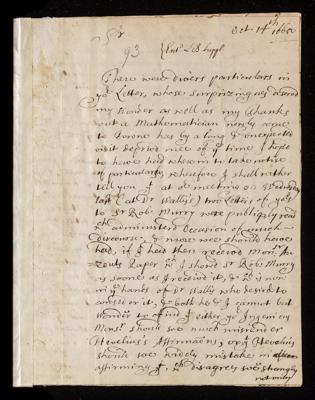 Oct 14th 1665
Sr
93 Entd LB Suppl
There were divers particulars in
yor Letter, whose surprizingnes deserved
my Wonder as well as my Thanks
but a Mathematician newly come
to Towne has by a long & unexpected
visit deprived mee of ye time I hope
to have had wherein to take notice
of particulars, wherefore I shall rather
tell you yt at or meeting on Wednesday
last (at Dr Wallis's) two Letters of yors
to Sr Rob: Murry were publiqly read
wch administerd Occasion of much
discourse, & more wee should have
had, if I had then received Monr Au-
zouts Paper wch I shewd Sr Rob: Murry
as soone as I received it, & wch is now
in ye hands of Dr Wallis who desired to
consider it, & both he & I cannot but
wonder to find yt either ye Ingenious
Monsr should soe much misunder
Hevelius's Affirmations, or yt Hevelius
should soe widely mistake in
affirming yt wch disagrees soe strangly
not only